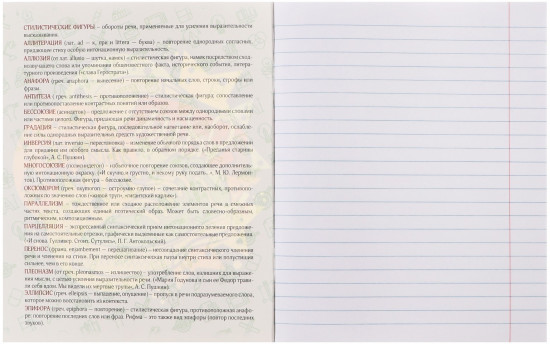 СТИЛИСТИЧЕСКИЕ ФИГУРЫ – обороты речи, применяемые для усиления выразительности
высказывания.
АЛЛИТЕРАЦИЯ (лат. al – к, при и littera – буква) – повторение однородных согласных,
придающее стиху особую интонационную выразительность.
АЛЛЮЗИЯ (от лат. allusio – шутка, намек) – стилистическая фигура, намек посредством сход-
нозвучащего слова или упоминания общеизвестного факта, исторического события, литера-
турного произведения («слава Герострата»).
АНАФОРА (греч. anaphora – вынесение) – повторение начальных слов, строки, строфы или
фразы.
АНТИТЕЗА (греч. antithesis – противоположение) – стилистическая фигура, сопоставление
или противопоставление контрастных понятий или образов.
БЕССОЮЗИЕ (асиндетон) – предложение с отсутствием союзов между однородными словами
или частями целого. Фигура, придающая речи динамичность и насыщенность.
ГРАДАЦИЯ – стилистическая фигура, последовательное нагнетание или, наоборот, ослабле-
ние силы однородных выразительных средств художественной речи.
ИНВЕРСИЯ (лат. inversio – перестановка) – изменение обычного порядка слов в предложении
для придания им особого смысла. Как правило, в обратном порядке. («Преданья старины
глубокой», А. С. Пушкин).
МНОГОСОЮЗИЕ (полисиндетон) – избыточное повторение союзов, создающее дополнитель-
ную интонационную окраску. («И скучно, и грустно, и некому руку подать...», М. Ю. Лермон-
тов). Противоположная фигура – бессоюзие.
ОКСЮМОРОН (греч. oxymoron – остроумно-глупое) – сочетание контрастных, противопо-
ложных по значению слов («живой труп», «гигантский карлик»).
ПАРАЛЛЕЛИЗМ – тождественное или сходное расположение элементов речи в смежных
частях текста, создающая единый поэтический образ. Может быть словесно-образным,
ритмическим, композиционным.
ПАРЦЕЛЛЯЦИЯ – экспрессивный синтаксический прием интонационного деления предложе-
ния на самостоятельные отрезки, графически выделенные как самостоятельные предложения.
(«И снова. Гулливер. Стоит. Сутулясь», П. Г. Антокольский).
ПЕРЕНОС (франц. enjambement – перешагивание) – несовпадение синтаксического членения
речи и членения на стихи. При переносе синтаксическая пауза внутри стиха или полустишия
сильнее, чем в его конце.
ПЛЕОНАЗМ (от греч. pleonasmos – излишество) – употребление слов, излишних для выраже-
ния мысли, с целью усиления выразительности речи. («Мария Годунова и сын ее Федор трави-
ли себя ядом. Мы видели их мертвые трупы», А. С. Пушкин).
ЭЛЛИПСИС (греч. elleipsis – выпадение, опущение) – пропуск в речи подразумеваемого слова,
которое можно восстановить из контекста.
ЭПИФОРА (греч. epiphora – повторение) – стилистическая фигура, противоположная анафо-
ре: повторение последних слов или фраз. Рифма – это также вид эпифоры (повтор последних
звуков).